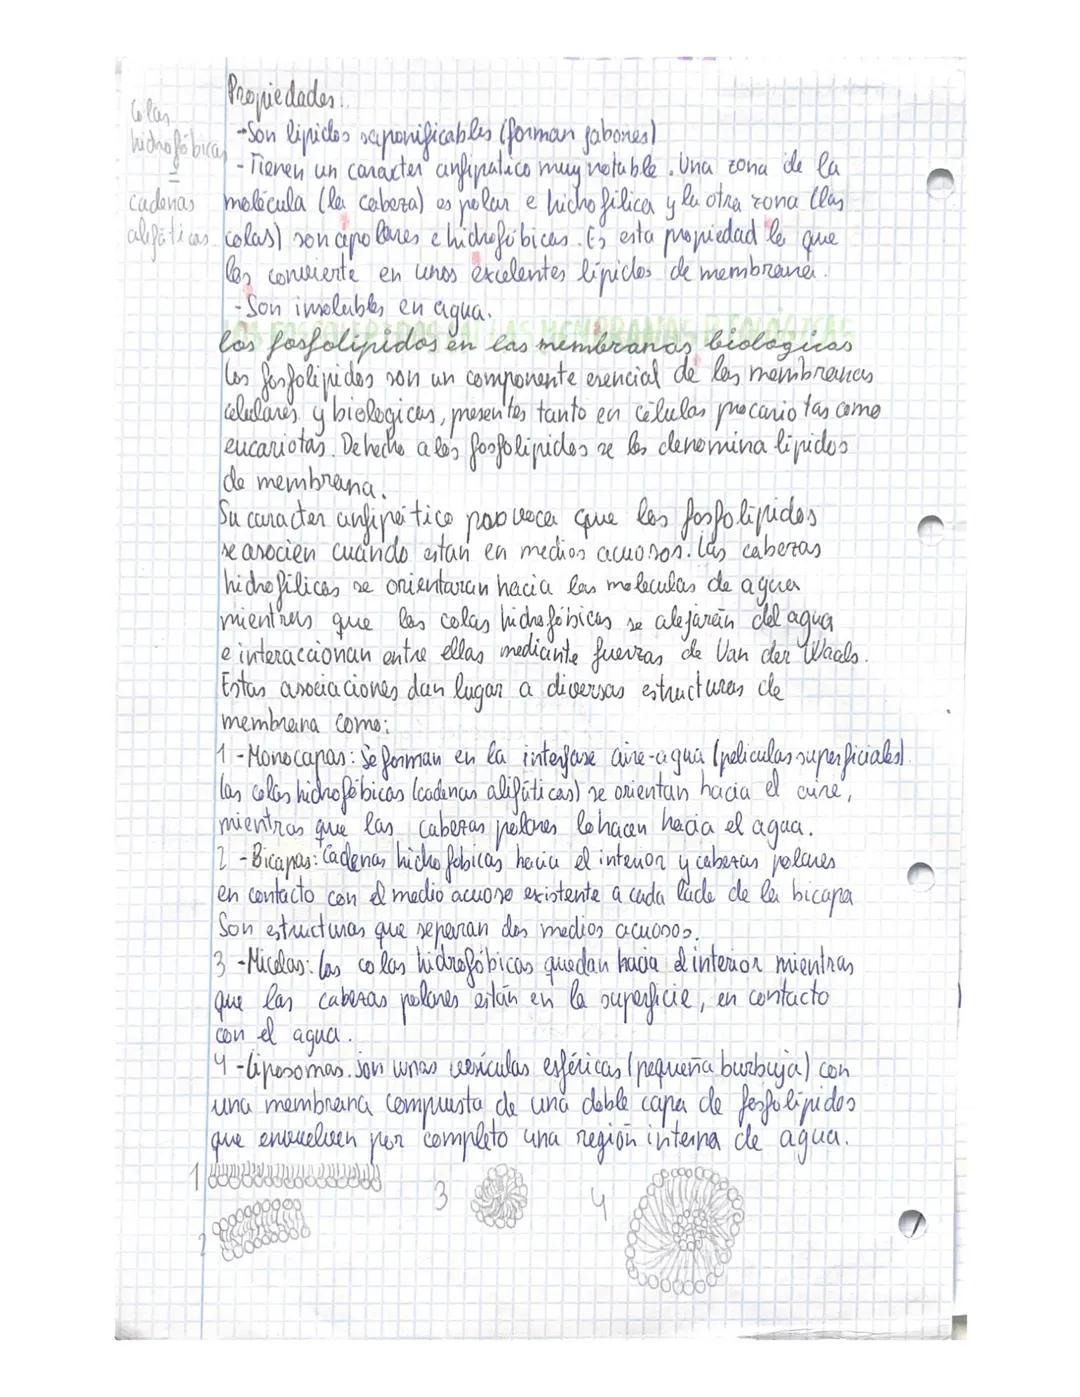 Propiedades:
-Son lípidos saponificables (forman jabones)
-Tienen un caracter anfipatico muy notable. Una zona de la
molécula (la cabeza) es polar e hidrofílica y la otra zona (las
colas) son apolares e hidrofóbicas. Es esta propiedad la que
los convierte en unos excelentes lípidos de membrana.
-Son insolubles en agua.
Colas
hidrofóbicas
=
cadenas
alifáticas
los fosfolípidos en las membranas biológicas
Los fosfolipidos son un componente esencial de las membranas
celulares y biologicas, presentes tanto en células procariotas como
eucariotas. De hecho a los fosfolípidos se les denomina lípidos
de membrana.
Su caracter anfipático provoca que los fosfolípidos
se asocien cuando estan en medios acuosos. Las cabezas
hidrofílicas se orientaran hacia las moleculas de agua
mientras que las colas hidrofóbicas se alejarán del agua
e interaccionan entre ellas mediante fuerzas de Van der Waals.
Estas asociaciones dan lugar a diversas estructuras de
membrana como:
1-Monocapas: Se forman en la interfase aire-agua (peliculas superficiales).
las colas hidrofóbicas (cadenas alifáticas) se orientan hacia el aire,
mientras que las cabezas polares lo hacen hacia el agua.
2-Bicapas: Cadenas hidrofobicas hacia el interior y cabezas polares
en contacto con el medio acuoso existente a cada lado de la bicapa
Son estructuras que separan dos medios acuosos.
3-Micelas: las colas hidrofóbicas quedan hacia el interior mientras
que las cabezas polares están en la superficie, en contacto
con el agua.
4-Liposomas. Son unas vesículas esféricas (pequeña burbuja) con
una membrana compuesta de una doble capa de fosfolípidos
que envuelven por completo una región interna de agua.
1
2
3
4